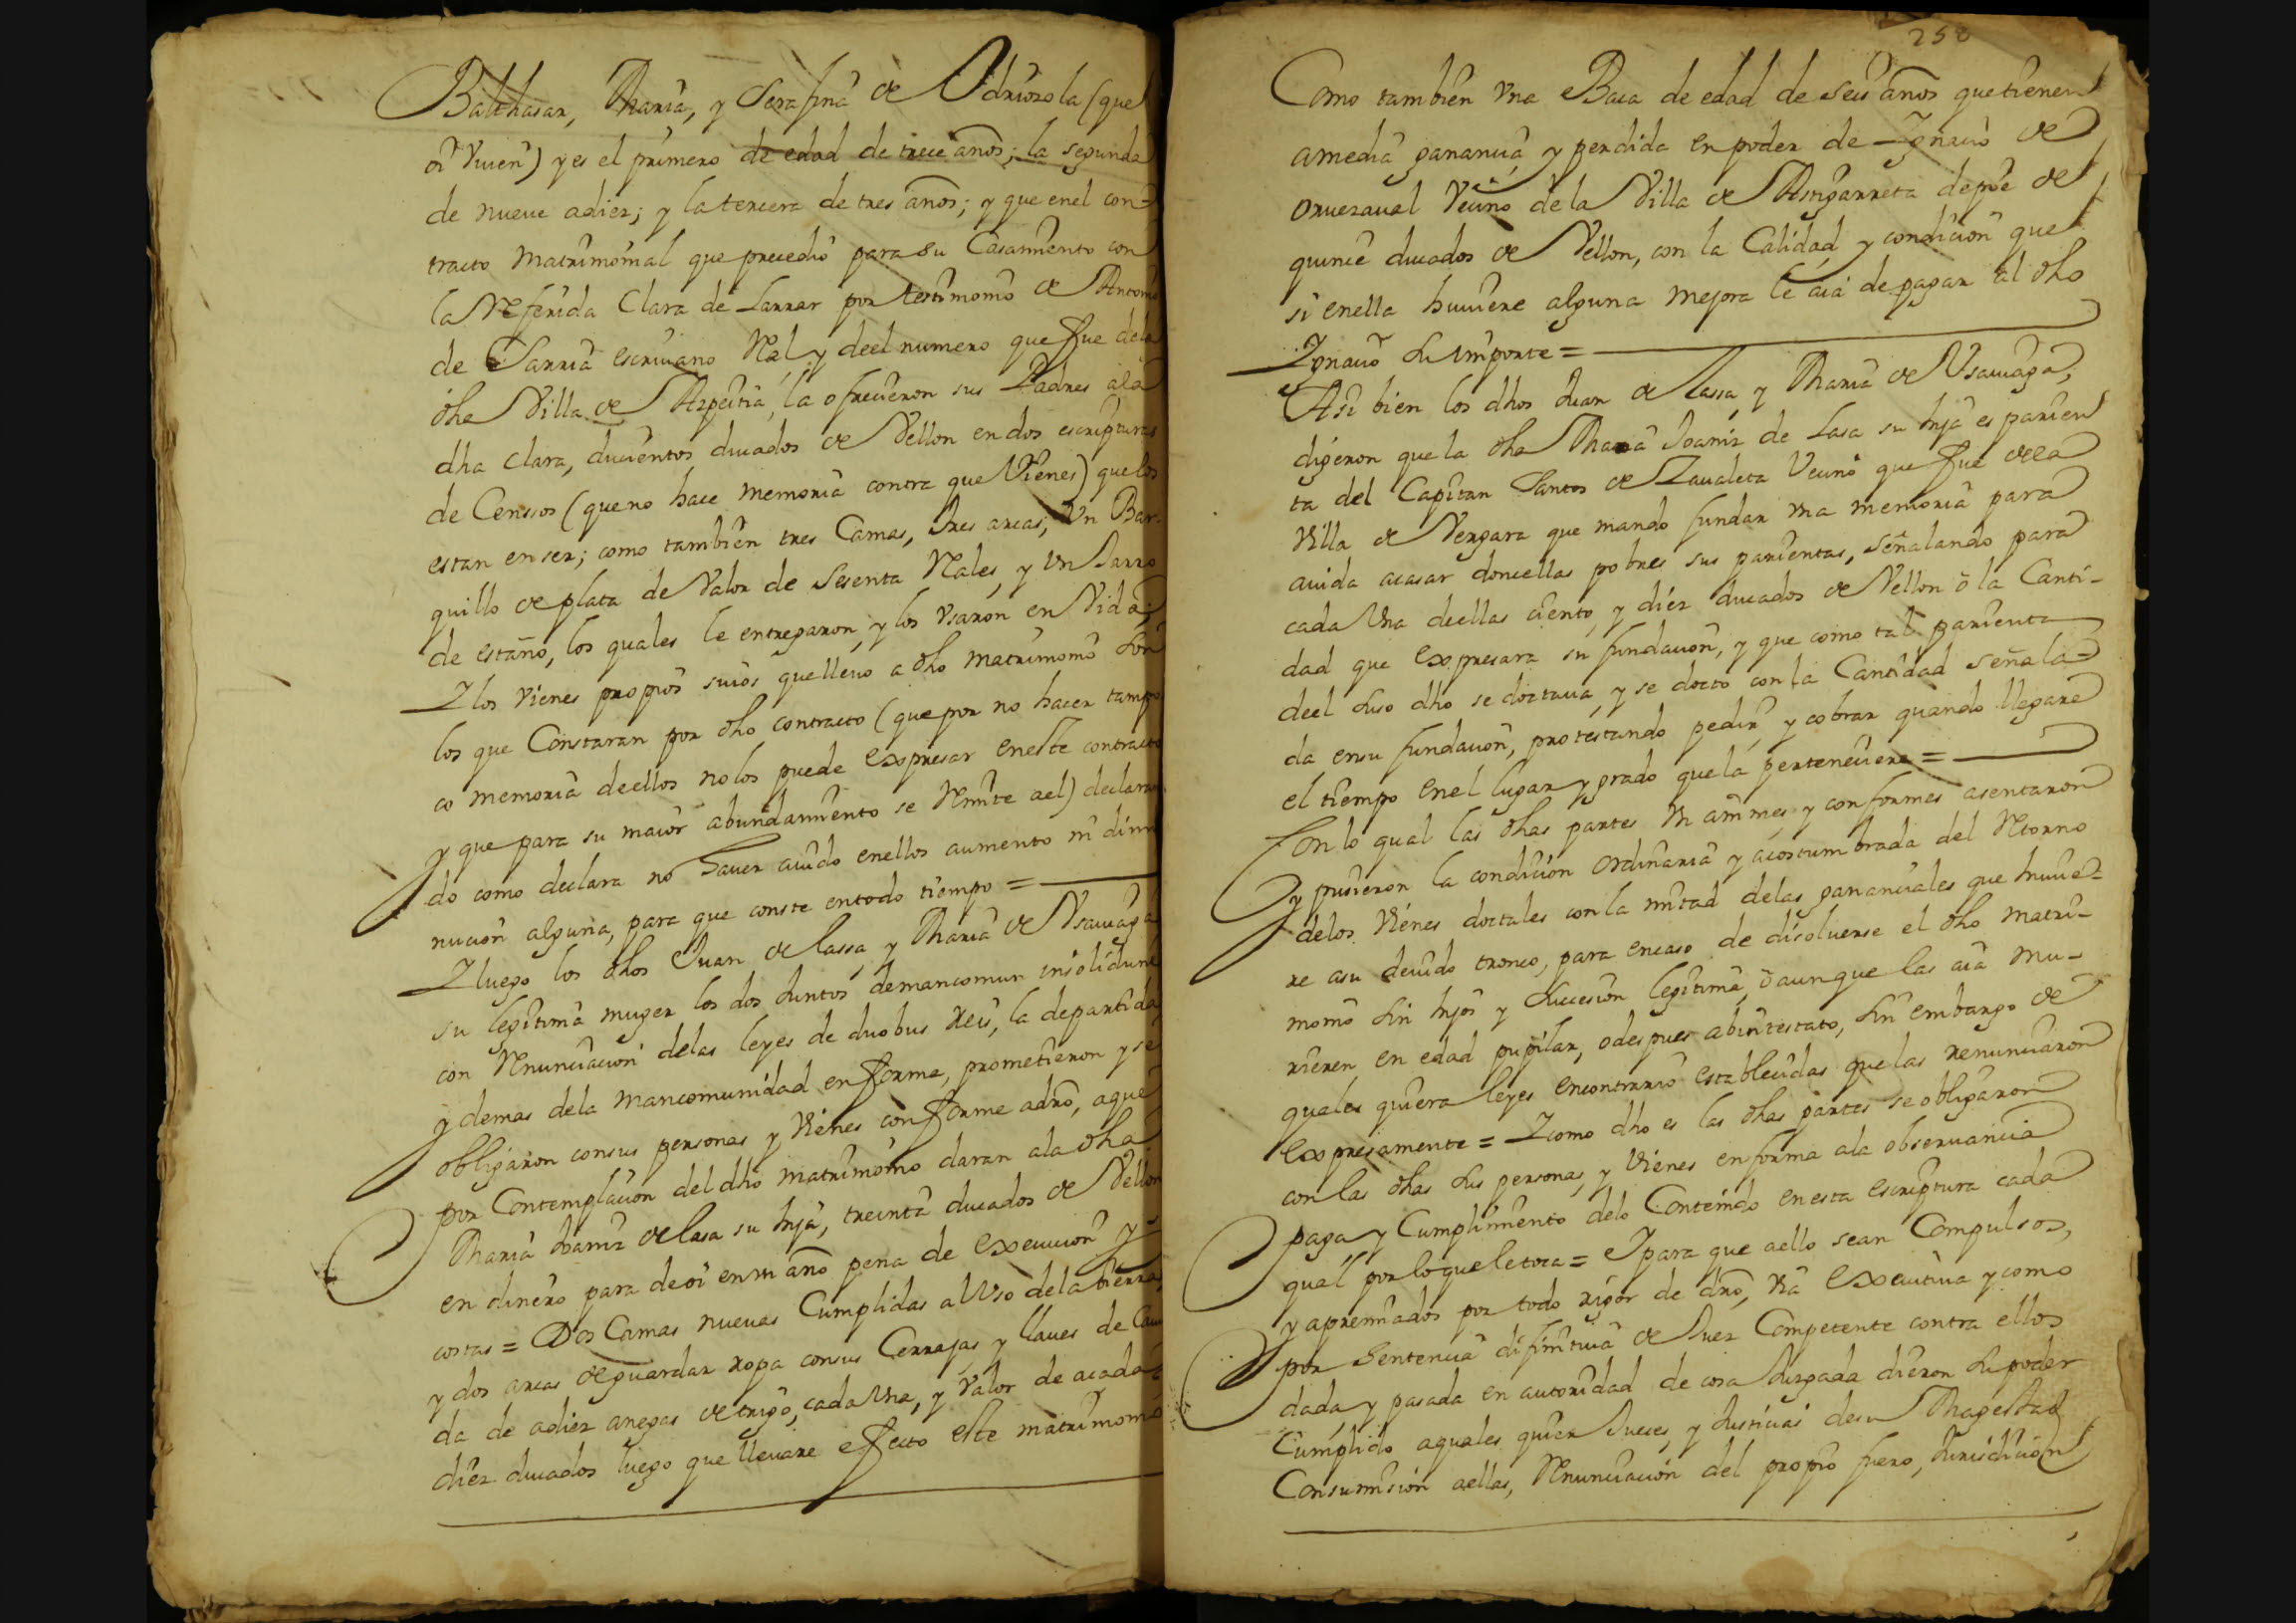 Balthasar, Maria, y Serafina de Odriozola (que
oi viuen) y es el primero de edad de trece años; la segunda
de nueue a diez; y la tercera de tres años; y que enel con-
tracto Matrimonial que precedio para su Casamiento con
la Referida Clara de Larrar por testimonio de Antonio
de Sarria escriuano Rl y deel numero que fue dela
dha Villa de Azpeitia, la ofrecieron sus Padres ala
dha Clara, ducientos ducados de Vellon en dos escripturas
de Censsos (que no hace memoria contra que Vienes) que los
estan en ser; como tambien tres Camas, tres arcas, Vn Bar-
quillo de plata de Valor de Sesenta Rales, y Vn Jarro
de estaño, los quales le entregaron, y los Vsaron en Vida;
Y los Vienes propios suios que lleuo a dho matrimonio son
los que Constaran por dho contracto (que por no hacer tampo
co memoria deellos no los puede expresar eneste contracto
y que para su maior abundamiento se Rmite ael) declaran
do como declara no hauer auido enellos aumento ni dimi
nucion alguna, para que conste entodo tiempo =
Y luego los dhos Juan de lassa, y Maria de Vsauiaga
su legitima muger los dos Juntos demancomun insolidum
con Rnunciacion delas leyes de duobus reis, la departida
y demas dela mancomunidad en forma, prometieron y se
obligaron consus personas y Vienes conforme adro, aque
por Contemplacion del dho matrimonio daran ala dha
Maria Joaniz de lasa su hija, treinta ducados de Vellon
en dinero para deoi en vn año pena de execucion y
costas = Dos Camas nueuas Cumplidas al Vso dela tierra,
y dos arcas de guardar ropa consus Cerrajas y llaues de Caui
da de adiez anegas de trigo, cada Vna, y valor de acada
diez ducados luego que lleuare efecto este matrimonio
258
Como tambien Vna Baca de edad de seis años que tienen
amedia ganancia, y perdida en poder de Ignacio de
oruezaual Vecino dela Villa de Astigarreta depie de
quince ducados de Vellon, con la Calidad, y condicion que
si enella huuiere alguna mejora le aia de pagar al dho
Ignacio su importe =
Asi bien los dhos Juan de lassa, y Maria de Vsauiaga,
digeron que la dha Maria Joaniz de Lasa su hija es parien
ta del Capitan Santos de Zaualeta Vecino que fue dela
Villa de Vergara que mando fundar vna memoria para
auida acasar doncellas pobres sus parientas, señalando para
cada Vna deellas ciento, y diez ducados de Vellon o la Canti-
dad que expresara su fundacion, y que como tal parienta
deel suso dho se doctaua, y se docto con la Cantidad señala-
da ensu fundacion, protestando pedir, y cobrar quando llegare
el tiempo enel lugar y grado que la perteneciere =
Con lo qual las dhas partes Vnanimes, y conformes asentaron
y pusieron la condicion ordinaria y acostumbrada del Rtorno
delos Vienes doctales con la mitad delas gananciales que huuie-
re asu deuido tronco, para encaso de disoluerse el dho matri-
monio sin hijos y sucesion legitima, o aunque las aia mu-
rieren en edad pupilar, o despues abintestato, sin embargo de
quales quiera leyes encontrario establecidas que las renunciaron
expresamente = Y como dho es las dhas partes se obligaron
con las dhas sus personas, y Vienes en forma ala obseruancia
paga y Cumplimiento delo Contenido en esta escriptura cada
qual por lo que le toca = Y para que aello sean Compulsos,
y apremiados por todo rigor de dro, via executiua y como
por Sentencia difinitiua de Juez Competente contra ellos
dada, y pasada en autoridad de cosa Juzgada dieron su poder
Cumplido aquales quier Jueces, y Justicias desu Magestad
Consumision aellas, Rnunciacion del propio fuero, Jurisdicion